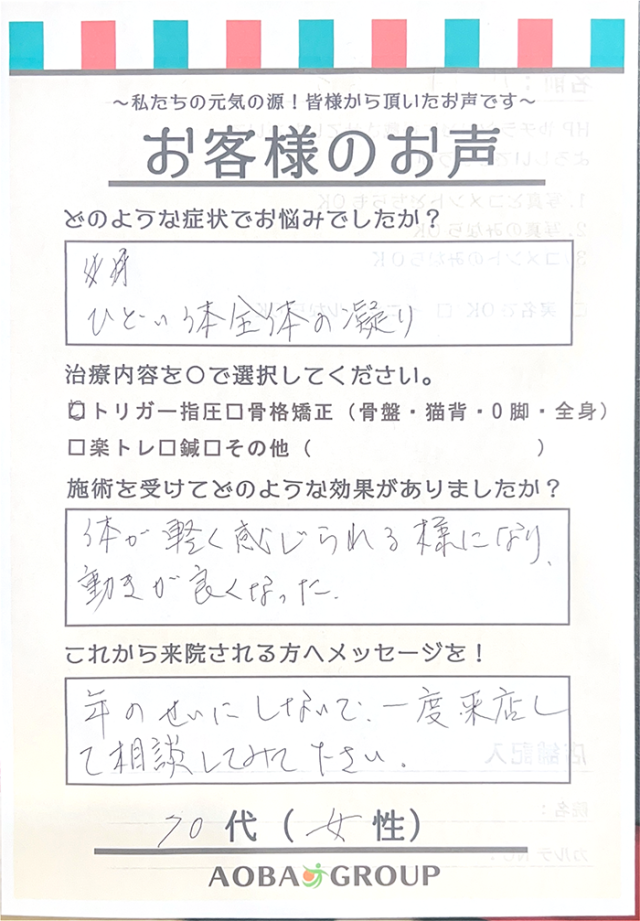 ~私たちの元気の源！皆様から頂いたお声です~
お客様のお声
どのような症状でお悩みでしたか？
ひどい体全体の凝り
治療内容を〇で選択してください。
☐トリガー指圧☐骨格矯正（骨盤・猫背・O脚・全身）
☐楽トレ☐鍼☐その他（　　　　　　　　　）
施術を受けてどのような効果がありましたか？
体が軽く感じられる様になり、
動きが良くなった.
これから来院される方へメッセージを！
年のせいにしないで、一度来店し
て相談してみて下さい.
70代（女性）
AOBA GROUP